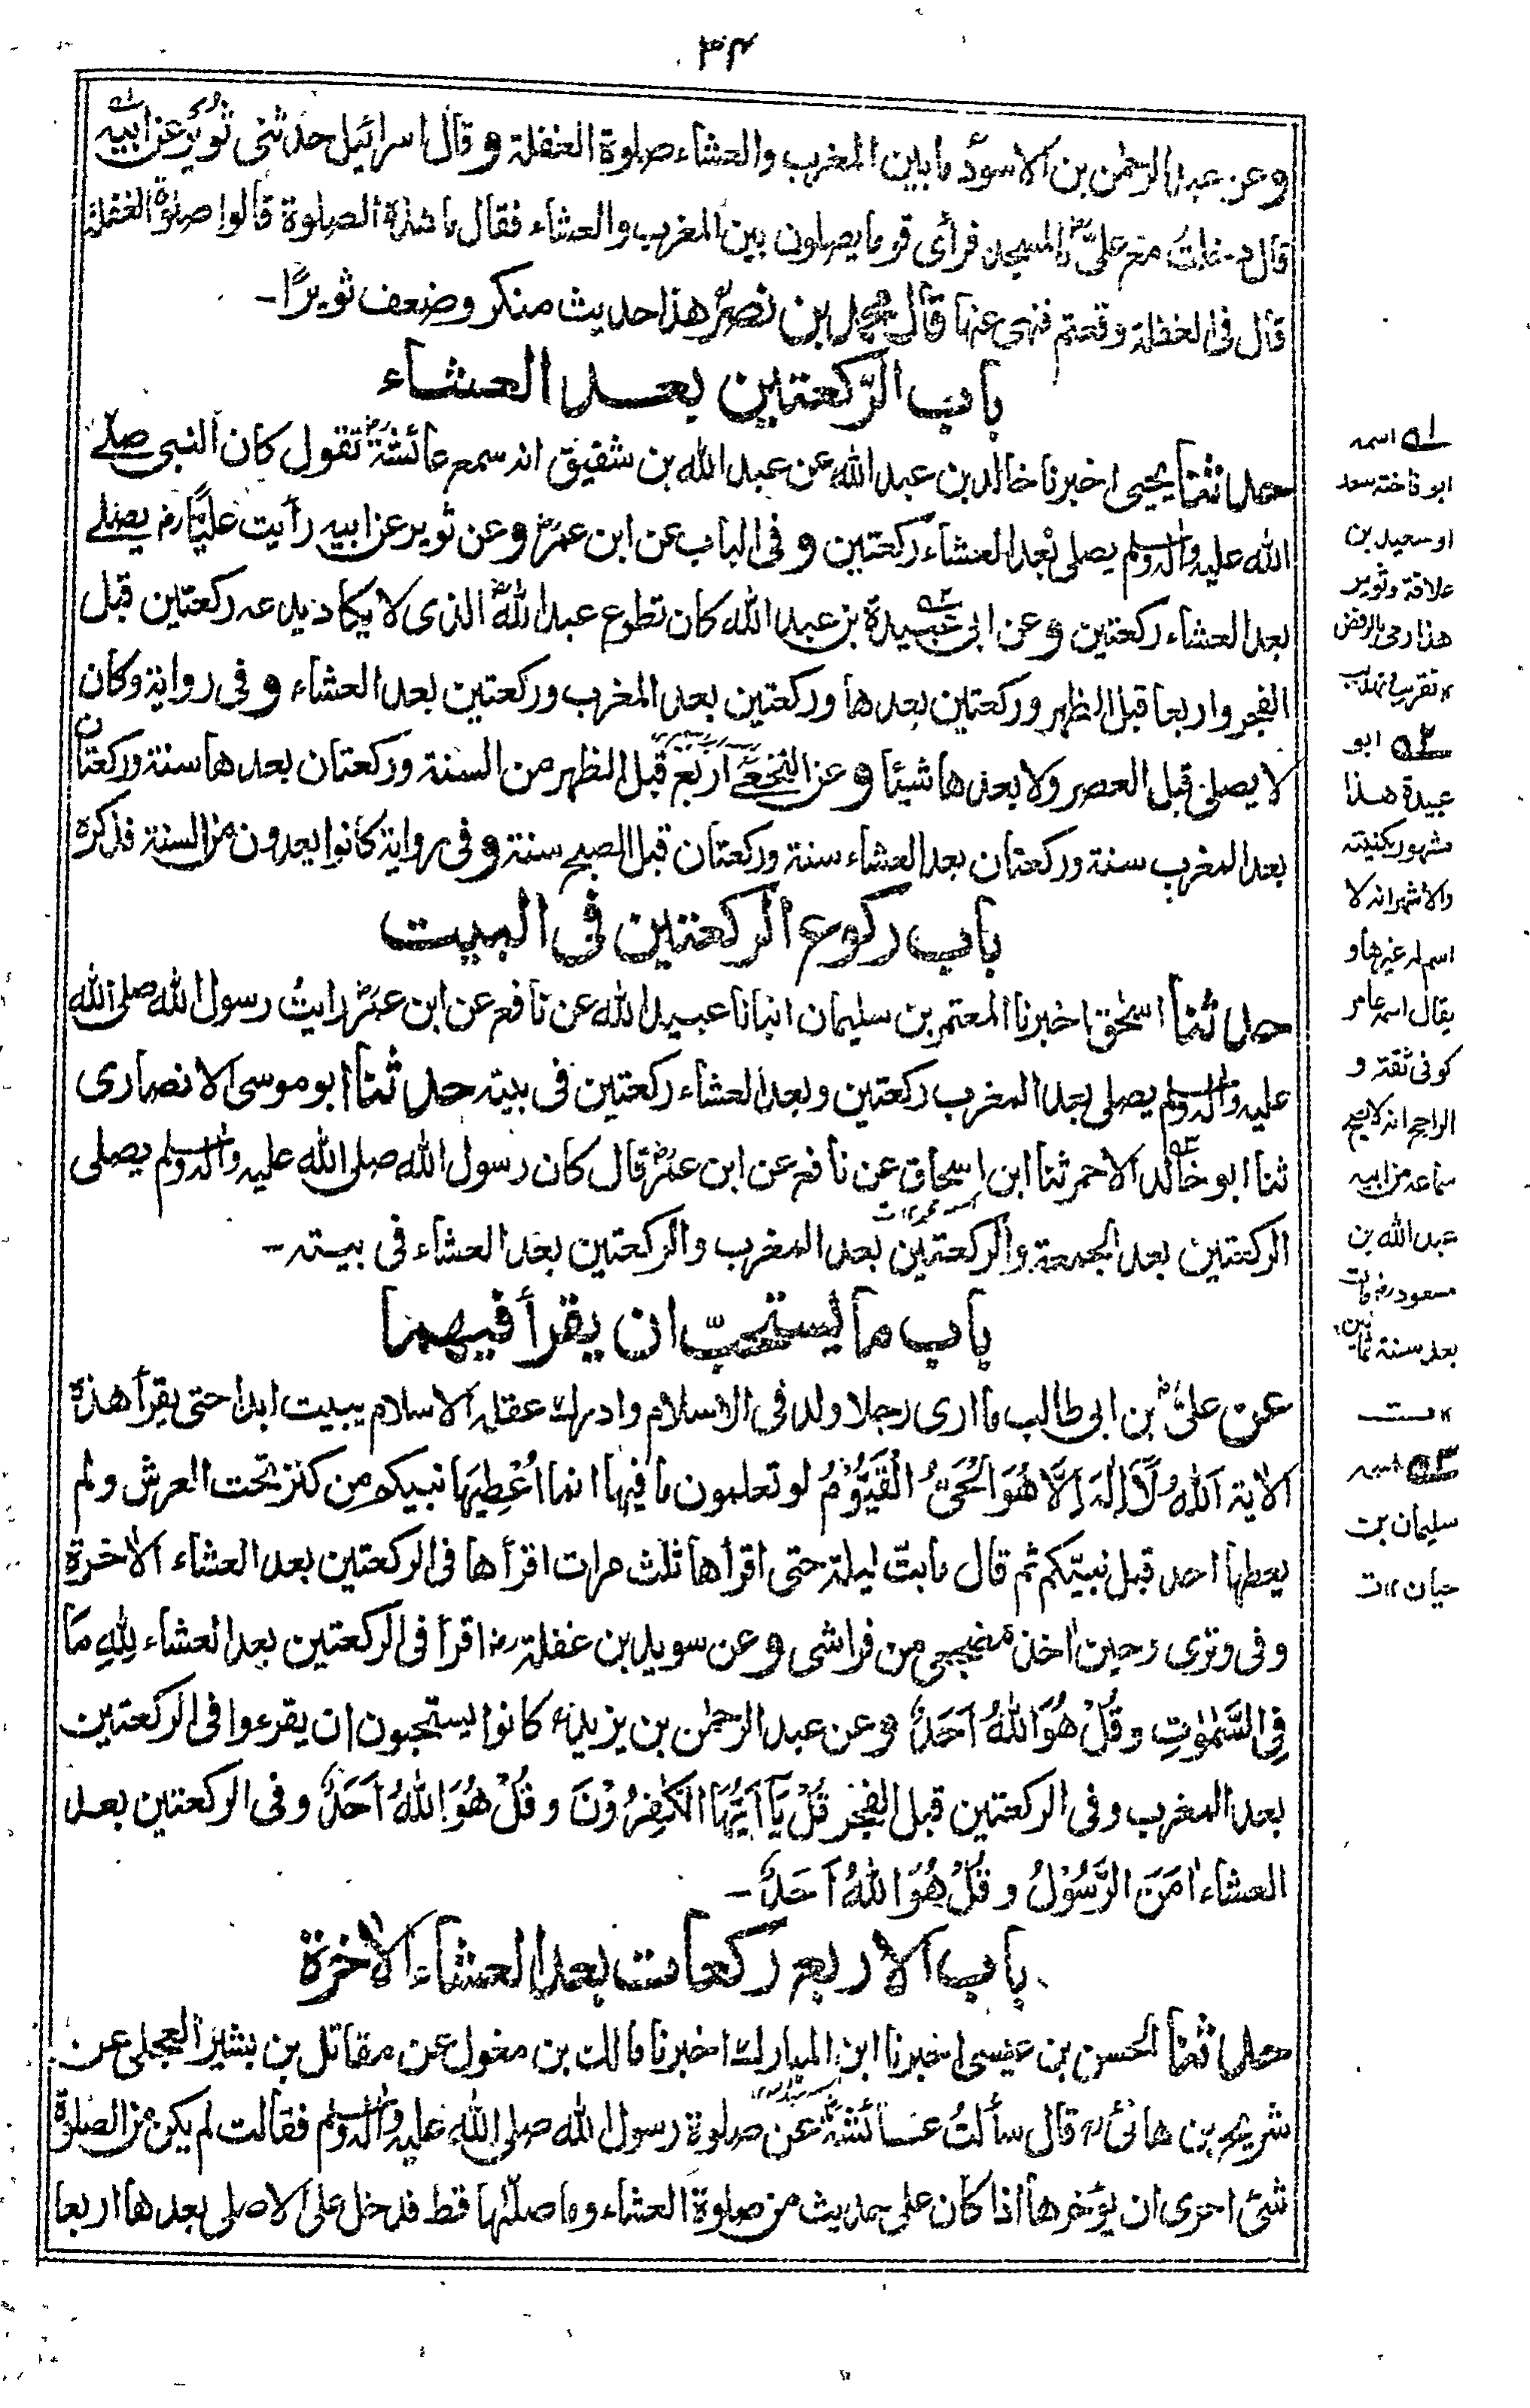 ٣٤
وعن عبد الرحمن بن الاسود ما بين المغرب والعشاء صلوة الغفلة وقال اسرائيل حدثنى ثوير عن ابيه
قال دخلت مع على المسجد فرأى قوما يصلون بين المغرب والعشاء فقال ما هذه الصلوة قالوا صلوة الغفلة
قال فى الغفلة وقعتم فنهى عنها قال محمد بن نصر هذا حديث منكر وضعف ثويرا-
باب الرّكعتين بعد العشاء
حدثنا يحيى اخبرنا خالد بن عبد الله عن عبد الله بن شقيق انه سمع عائشة تقول كان النبى صلے
الله عليه وآله وسلم يصلى بعد العشاء ركعتين وفى الباب عن ابن عمر وعن ثوير عن ابيه رأيت عليًا رض يصلے
بعد العشاء ركعتين وعن ابى عبيدة بن عبد الله كان تطوع عبد الله الذى لا يكاد يدعه ركعتين قبل
الفجر واربعا قبل الظهر وركعتين بعدها وركعتين بعد المغرب وركعتين بعد العشاء وفى رواية وكان
لا يصلى قبل العصر ولا بعدها شيئا وعن النخعے اربع قبل الظهر من السنة وركعتان بعدها سنة وركعتان
بعد المغرب سنة وركعتان بعد العشاء سنة وركعتان قبل الصبح سنة وفى رواية كانوا يعدون من السنة فذكره
باب ركوع الركعتين فى البيت
حدثنا اسحق اخبرنا المعتمر بن سليمان انبانا عبيد الله عن نافع عن ابن عمر رايت رسول الله صلى الله
عليه وآله وسلم يصلى بعد المغرب ركعتين وبعد العشاء ركعتين فى بيته حدثنا ابو موسى الانصارى
ثنا ابو خالد الاحمر ثنا ابن اسحاق عن نافع عن ابن عمر قال كان رسول الله صلى الله عليه وآله وسلم يصلى
الركعتين بعد الجمعة والركعتين بعد المغرب والركعتين بعد العشاء فى بيته-
باب ما يستحبّ ان يقرأ فيهما
عن علىّ بن ابى طالب ما ارى رجلا ولد فى الاسلام وادرك عقله الاسلام يبيت ابدا حتى يقرأ هذه
الاية اَللهُ لَآ اِلٰهَ اِلَّا هُوَ الْحَىُّ الْقَيُّوْمُ لو تعلمون ما فيها انما اُعْطِيَها نبيكم من كنز تحت العرش ولم
يعطها احد قبل نبيّكم ثم قال ما بتّ ليلة حتى اقرأها ثلث مرات اقرأها فى الركعتين بعد العشاء الاٰخرة
وفى وترى وحين اخذ مضجعى من فراشى وعن سويد بن غفلة رض اقرأ فى الركعتين بعد العشاء لِلّٰهِ مَا
فِى السَّمٰوٰتِ وقُلْ هُوَ اللهُ اَحَدٌ وعن عبد الرحمٰن بن يزيد كانوا يستحبون ان يقرءوا فى الركعتين
بعد المغرب وفى الركعتين قبل الفجر قُلْ يَآ اَيُّهَا الْكٰفِرُوْنَ وقُلْ هُوَ اللهُ اَحَدٌ وفى الركعتين بعد
العشاء اٰمَنَ الرَّسُوْلُ وقُلْ هُوَ اللهُ اَحَدٌ-
باب الاربع ركعات بعد العشاء الاٰخرة
حدثنا الحسن بن عيسى اخبرنا ابن المبارك اخبرنا مالك بن مغول عن مقاتل بن بشير العجلى عن
شريح بن هانئ قال سألتُ عائشة عن صلوة رسول الله صلى الله عليه وآله وسلم فقالت لم يكن من الصلوة
شئ احرى ان يؤخرها اذا كان على حديث من صلوة العشاء وما صلّها قط فدخل علىّ الا صلى بعدها اربعا
له١ اسمه
ابو فاخته سعد
او سعيد بن
علاقة وثوير
هذا رمى بالرفض
١٢ تقريب تهذيب
له٢ ابو
عبيدة هذا
مشهور بكنيته
والاشهر انه لا
اسم له غيرها و
يقال اسمه عامر
كوفى ثقة و
الراجح انه لا يصح
سماعه من ابيه
عبد الله بن
مسعود رض مات
بعد سنة ثمانين
١٢ ت
له٣ اسمه
سليمان بن
حيان ١٢ ت